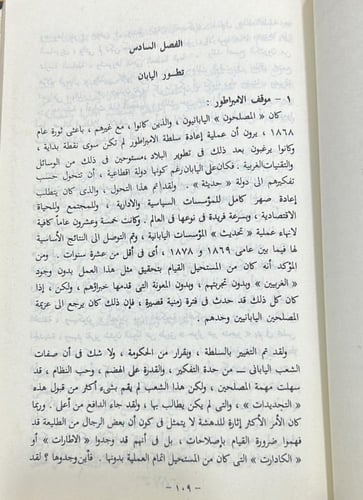 الفصل السادس
تطور اليابان
١ – موقف الامبراطور :
كان « المصلحون » اليابانيون ، والذين كانوا ، مع غيرهم ، باعثى ثورة عام
١٨٦٨ ، يرون أن عملية إعادة سلطة الامبراطور لم تكن سوى نقطة بداية ،
وكانوا يرغبون بعد ذلك فى تطوير البلاد ، مستوحين فى ذلك من الوسائل
والتقنيات الغربية . فكان على اليابان رغم كونها دولة إقطاعية ، أن تتحول حسب
تفكيرهم الى دولة « حديثة » . ولقد تم هذا التحول ، والذى كان يتطلب
إعادة صهر كامل للمؤسسات السياسية والادارية ، وللمجتمع وللحياة
الاقتصادية ، وبسرعة فريدة فى نوعها فى العالم . وكانت خمسة وعشرون عاماً كافية
لانهاء عملية « تحديث » المؤسسات اليابانية ، وتم التوصل الى النتائج الأساسية
لها فيما بين عامى ١٨٦٩ و ١٨٧٨ ، أى فى أقل من عشرة سنوات . ومن
المؤكد أنه كان من المستحيل القيام بتحقيق مثل هذا العمل بدون وجود
« الغربيين » وبدون تجربتهم ، وبدون المعونة التى قدمها خبراؤهم ، ولكن ، إذا
كان كل ذلك قد حدث فى فترة زمنية قصيرة ، فإن ذلك كان يرجع الى عزيمة
المصلحين اليابانيين وحدهم .
ولقد تم التغيير بالسلطة ، وبقرار من الحكومة ، ولا شك فى أن صفات
الشعب اليابانى – من حدة التفكير ، والقدرة على الهضم ، وحب النظام ، قد
سهلت مهمة المصلحين ، ولكن هذا الشعب لم يقم بشىء أكثر من قبول هذه
« التجديدات » ، والتى لم يكن يطالب بها ، ولقد جاء الدافع من أعلى . وربما
كان الأمر الأكثر إثارة للدهشة لا يتمثل فى كون أن بعض الرجال من الطليعة قد
فهموا ضرورة القيام بإصلاحات ، بل فى أنهم قد وجدوا « الاطارات » أو
« الكادارت » التى كان من المستحيل اتمام العملية بدونها . فأين وجدوها ؟ لقد
– ١٠٩ –